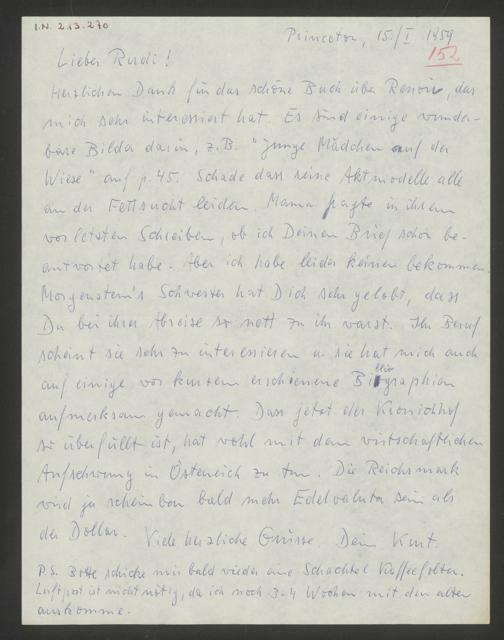 I.N. 213.270
Princeton, 15./I. 1959
152
Lieber Rudi!
Herzlichen Dank für das schöne Buch über Renoir, das
mich sehr interessiert hat. Es sind einige wunder-
bare Bilder darin, z.B. "Junge Mädchen auf der
Wiese" auf p. 45. Schade dass seine Aktmodelle alle
an der Fettsucht leiden. Mama fragte in ihrem
vorletzten Schreiben, ob ich Deinen Brief schon be-
antwortet habe. Aber ich habe leider keinen bekommen.
Morgenstern's Schwester hat Dich sehr gelobt, dass
Du bei ihrer Abreise so nett zu ihr warst. Ihr Beruf
scheint sie sehr zu interessieren u. sie hat mich auch
auf einige vor kurzem erschienene Bibliographien
aufmerksam gemacht. Dass jetzt der
so überfüllt ist, hat wohl mit dem wirtschaftlichen
Aufschwung in Österreich zu tun. Die Reichsmark
wird ja scheinbar bald mehr Edelvaluta sein als
der Dollar. Viele herzliche Grüsse, Dein Kurt.
P.S. Bitte schicke mir bald wieder eine Schachtel Kaffeefilter.
Luftpost ist nicht nötig, da ich noch 3-4 Wochen mit den alten
auskomme.